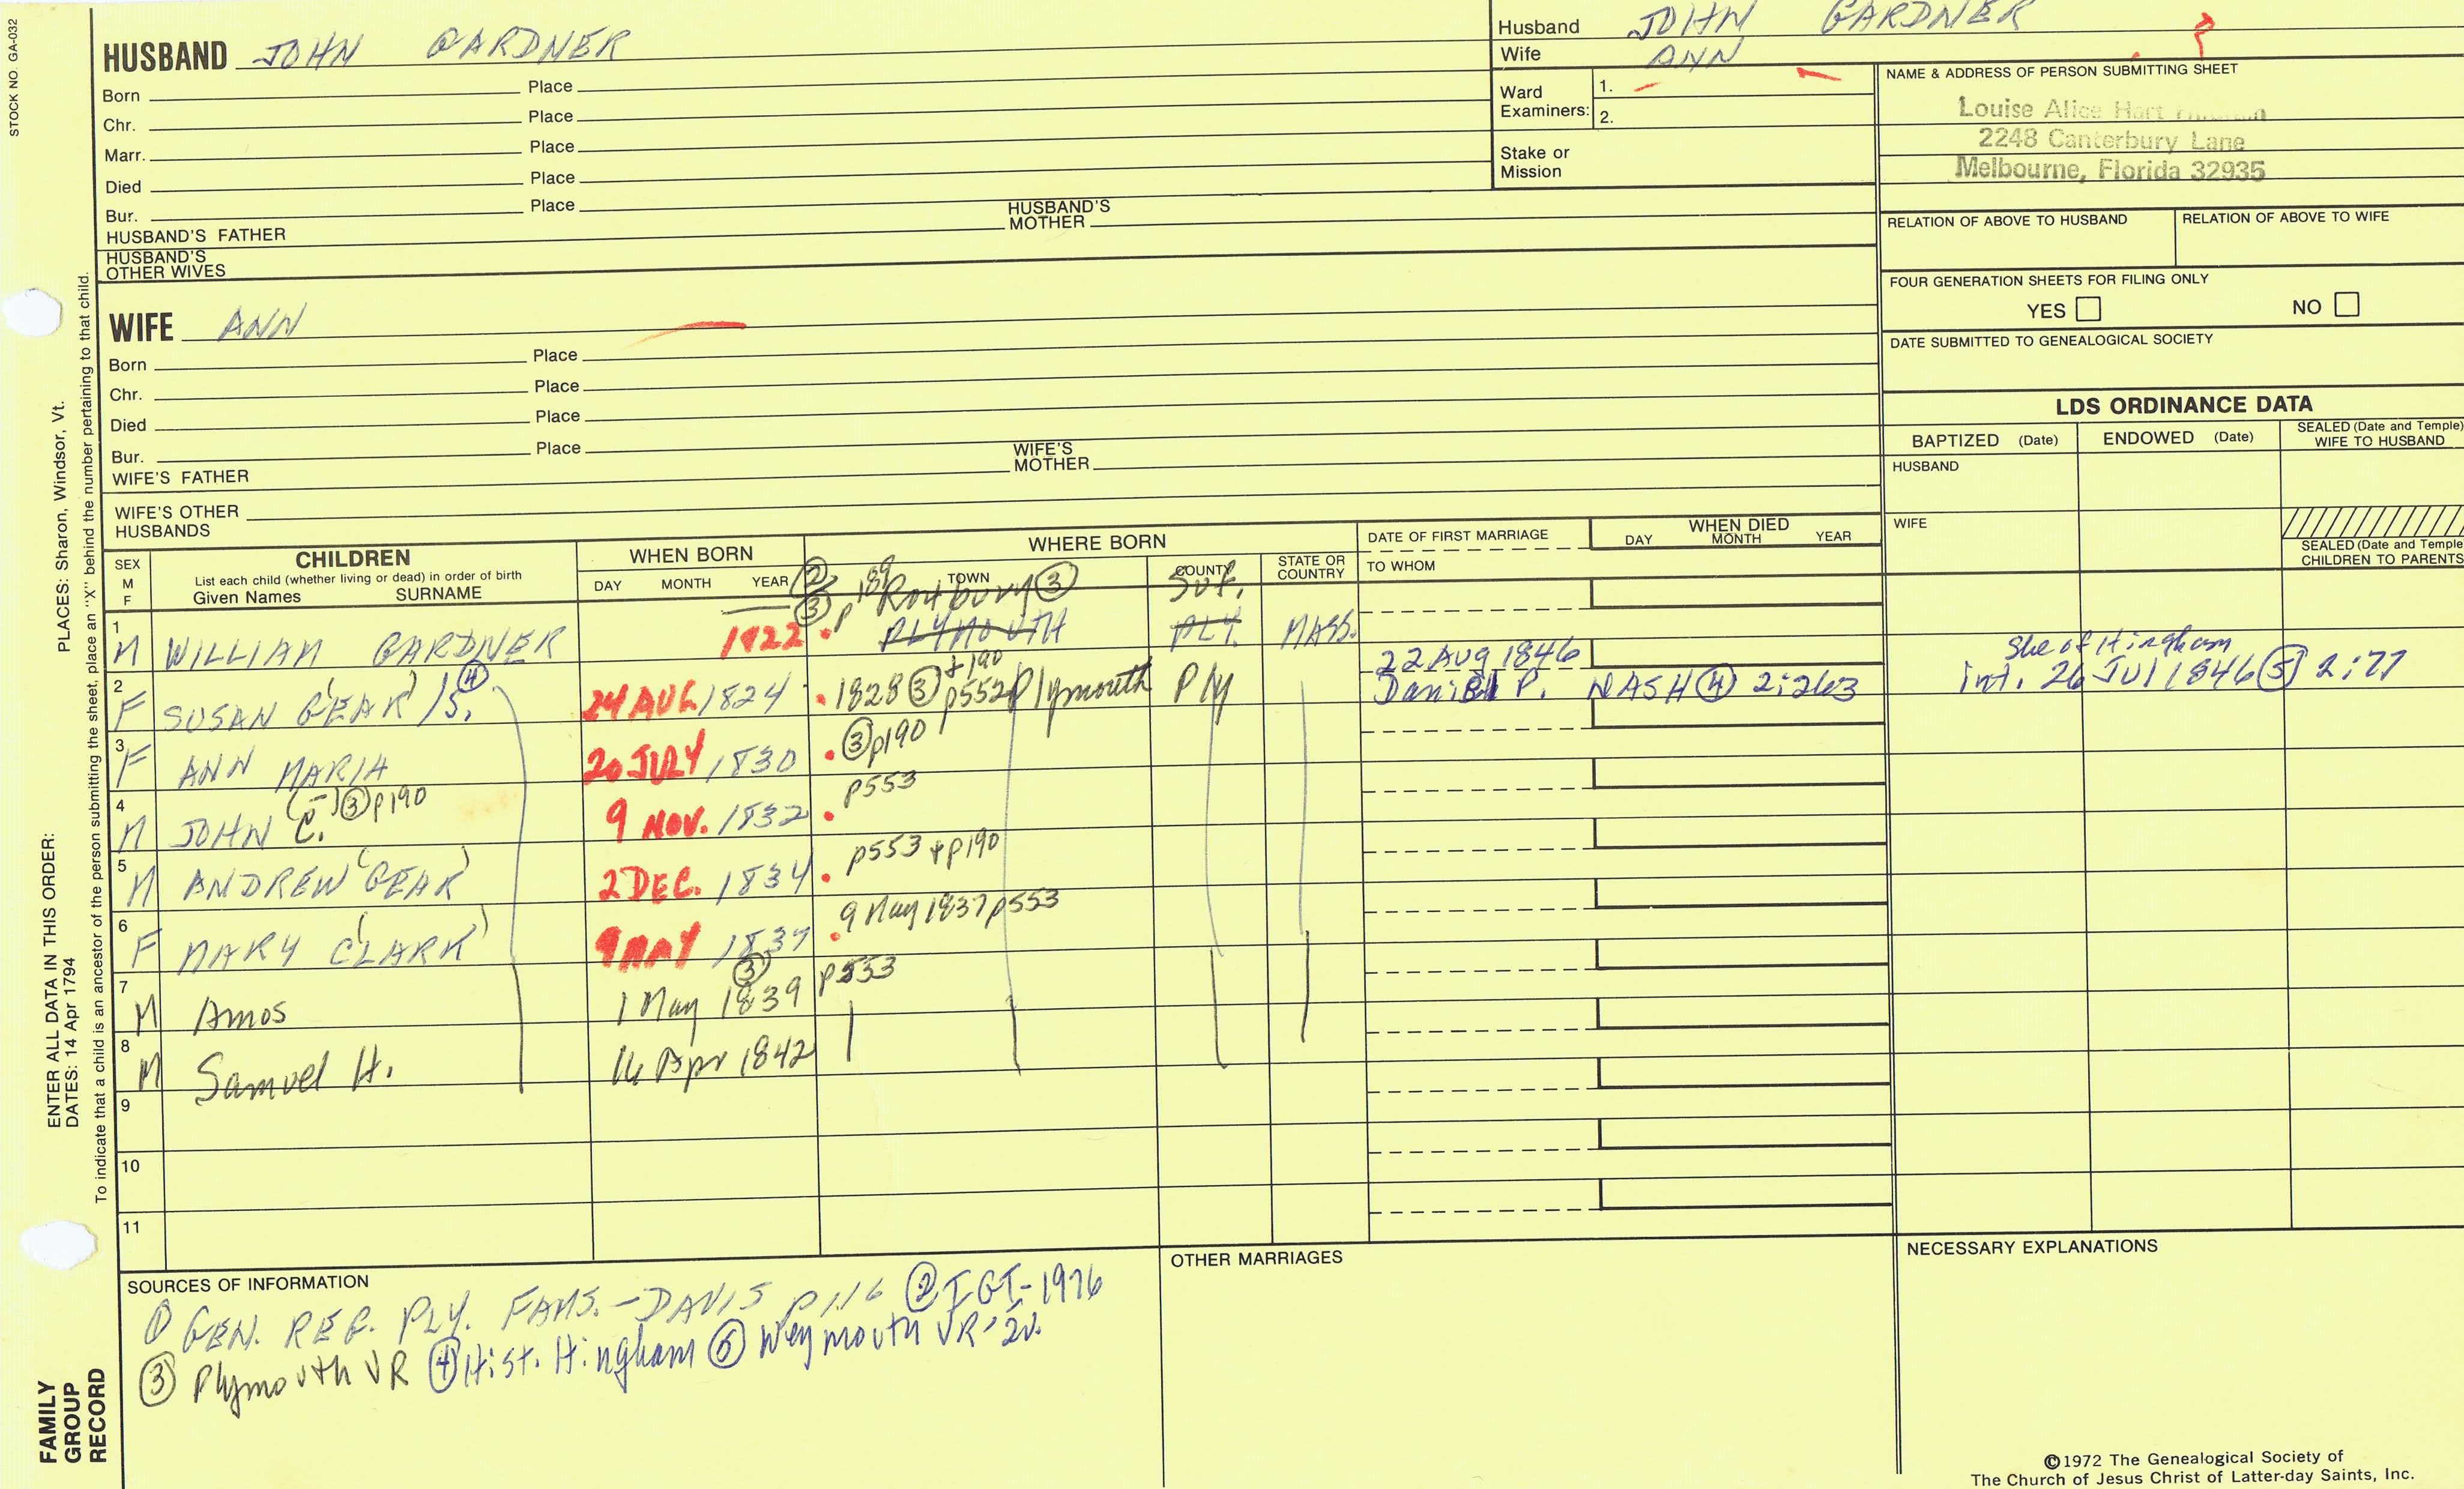 STOCK NO. GA-032
HUSBAND JOHN GARDNER
Born Place
Chr. Place
Marr. Place
Died Place
Bur. Place
HUSBAND'S FATHER HUSBAND'S MOTHER
HUSBAND'S OTHER WIVES
Husband JOHN GARDNER
Wife ANN
Ward Examiners: 1.
2.
Stake or Mission
NAME & ADDRESS OF PERSON SUBMITTING SHEET
Louise Alice Hart
2248 Canterbury Lane
Melbourne, Florida 32935
RELATION OF ABOVE TO HUSBAND RELATION OF ABOVE TO WIFE
FOUR GENERATION SHEETS FOR FILING ONLY
YES NO
DATE SUBMITTED TO GENEALOGICAL SOCIETY
WIFE ANN
Born Place
Chr. Place
Died Place
Bur. Place
WIFE'S FATHER WIFE'S MOTHER
WIFE'S OTHER HUSBANDS
LDS ORDINANCE DATA
BAPTIZED (Date) ENDOWED (Date) SEALED (Date and Temple) WIFE TO HUSBAND
HUSBAND
WIFE
SEALED (Date and Temple CHILDREN TO PARENTS
SEX M F
CHILDREN
List each child (whether living or dead) in order of birth
Given Names SURNAME
WHEN BORN
DAY MONTH YEAR
WHERE BORN
TOWN COUNTY STATE OR COUNTRY
DATE OF FIRST MARRIAGE
TO WHOM
WHEN DIED
DAY MONTH YEAR
② ③ p189 Roxbury ③ Suf.
1 M WILLIAM GARDNER 1822 PLYMOUTH PLY. MASS.
2 F SUSAN (GEAR) /S. ④ 24 AUG. 1824 1828 ③ p552 +190 Plymouth Ply
22 AUG 1846
Daniel P. NASH ④ 2:263
She of Hingham
int. 26 Jul 1846 ⑤ 2:77
3 F ANN MARIA 20 JULY 1830 ③ p190
4 M JOHN C. (-) ③ p190 9 NOV. 1832 p553
5 M ANDREW (GEAR) 2 DEC. 1834 p553 + p190
6 F MARY (CLARK) 9 MAY 1837 9 May 1837 p553
7 M Amos 1 May 1839 ③ p553
8 M Samuel H. 14 Apr 1842
9
10
11
SOURCES OF INFORMATION
① GEN. REG. PLY. FAMS. - DAVIS p116 ② IGI-1976
③ Plymouth VR ④ Hist. Hingham ⑤ Weymouth VR, 2v.
OTHER MARRIAGES
NECESSARY EXPLANATIONS
©1972 The Genealogical Society of
The Church of Jesus Christ of Latter-day Saints, Inc.
PLACES: Sharon, Windsor, Vt.
To indicate that a child is an ancestor of the person submitting the sheet, place an "X" behind the number pertaining to that child.
ENTER ALL DATA IN THIS ORDER:
DATES: 14 Apr 1794
FAMILY
GROUP
RECORD